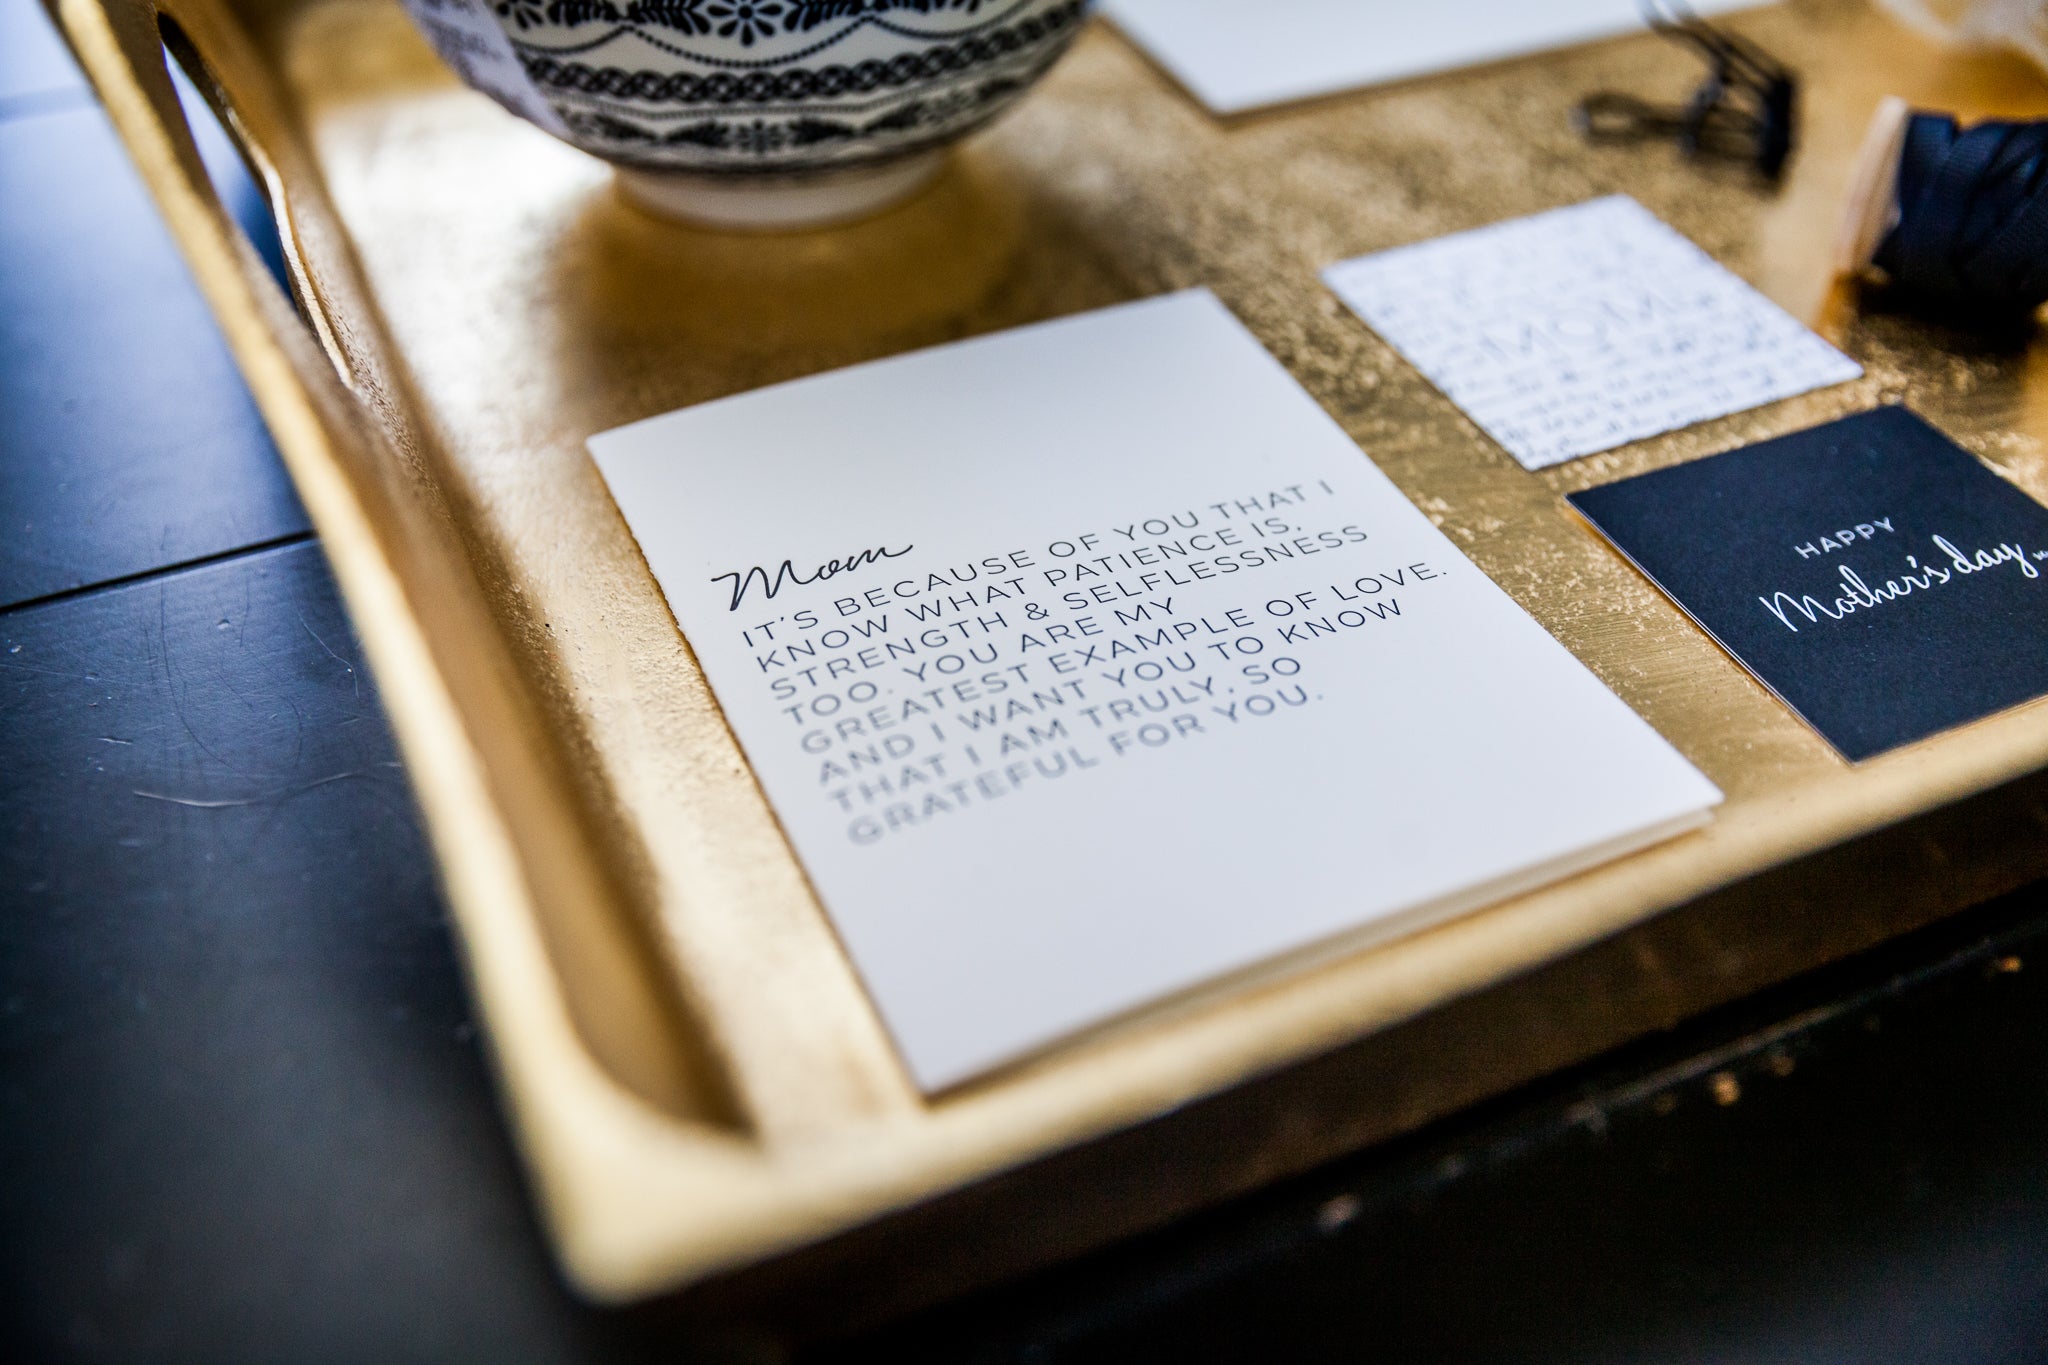 Mom
IT'S BECAUSE OF YOU THAT I
KNOW WHAT PATIENCE IS,
STRENGTH & SELFLESSNESS
TOO. YOU ARE MY
GREATEST EXAMPLE OF LOVE.
AND I WANT YOU TO KNOW
THAT I AM TRULY, SO
GRATEFUL FOR YOU.
MOM
HAPPY
Mother's day